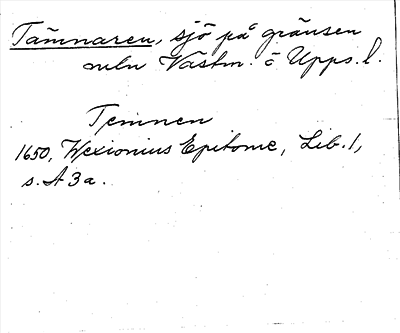 Tämnaren, sjö på gränsen
mln Västm. o Upps. l.
Temnen
1650, Wexionius Epitome, Lib. 1,
s. A 3 a.